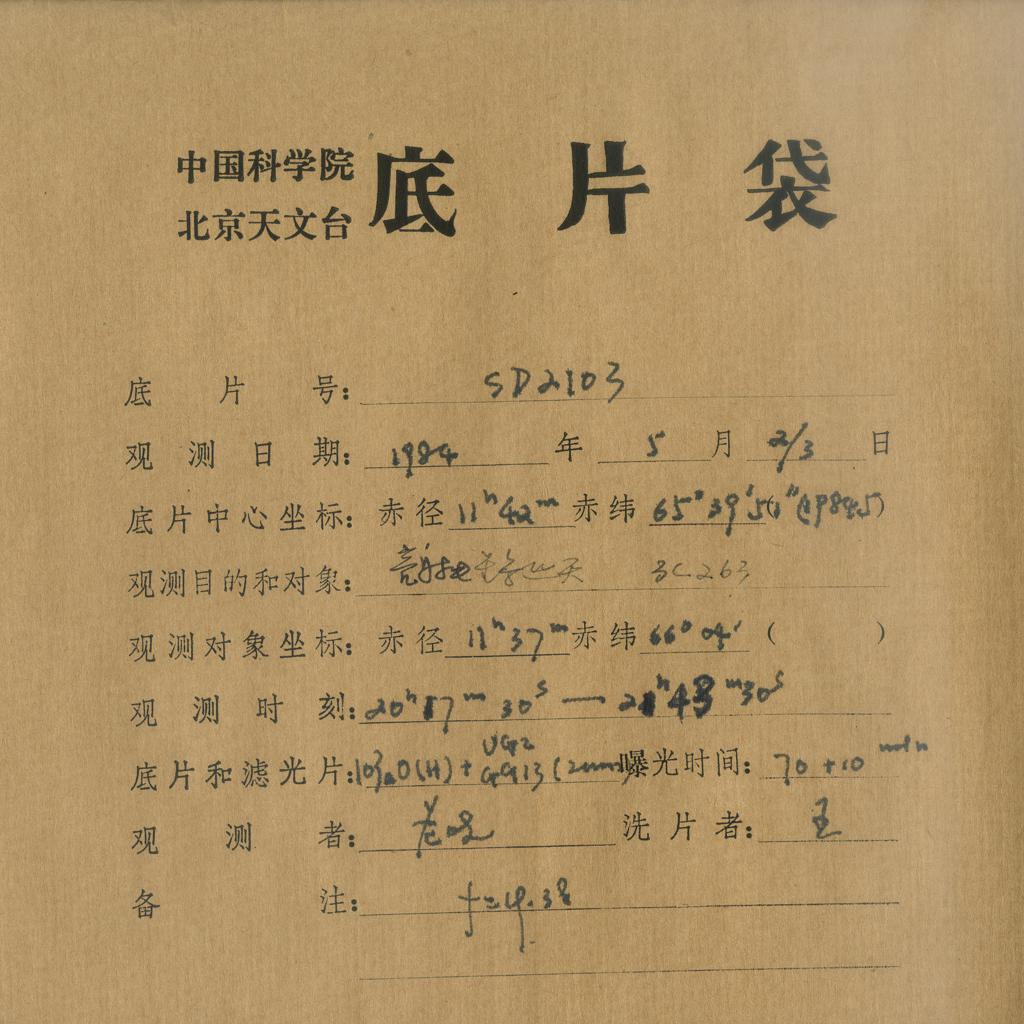 中国科学院
北京天文台
底片袋
底片号: SD2103
观测日期: 1984 年 5 月 2/3 日
底片中心坐标: 赤径 11h 42m 赤纬 65° 39' (1984.5)
观测目的和对象: 3C263
观测对象坐标: 赤径 11h 37m 赤纬 66° 04' ( )
观测时刻: 20h 17m 30s — 21h 43m 30s
底片和滤光片: 103aO(H) + UG2 GG13 (2mm) 曝光时间: 70+10 min
观测者: 洗片者: 王
备注: